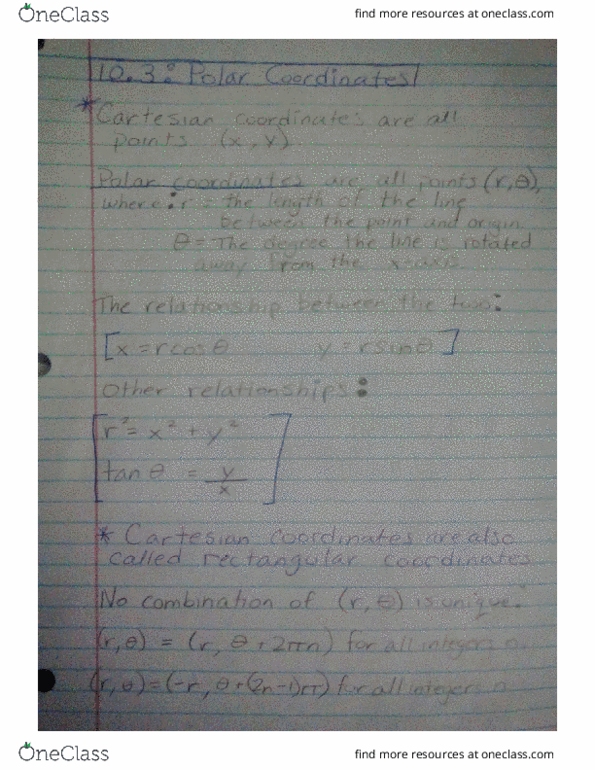 OneClass
find more resources at oneclass.com
10.3: Polar Coordinates
* Cartesian coordinates are all
points (x, y)
Polar coordinates are all points (r, θ),
where: r = the length of the line
between the point and origin
θ = The degree the line is rotated
away from the x-axis
The relationship between the two:
[x = rcosθ y = rsinθ]
Other relationships:
r² = x² + y²
tan θ = y/x
* Cartesian coordinates are also
called rectangular coordinates
No combination of (r, θ) is unique.
(r, θ) = (r, θ + 2πn) for all integers n.
(r, θ) = (-r, θ + (2n-1)π) for all integers n
OneClass
find more resources at oneclass.com